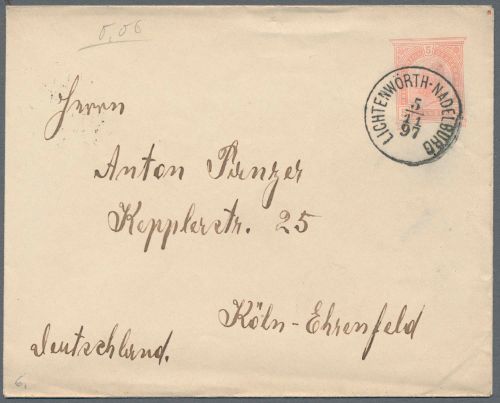 0,06
5
LICHTENWÖRTH-NADELBURG
5
11
97
Herrn
Anton Panzer
Kepplerstr. 25
Köln-Ehrenfeld
Deutschland.
6,